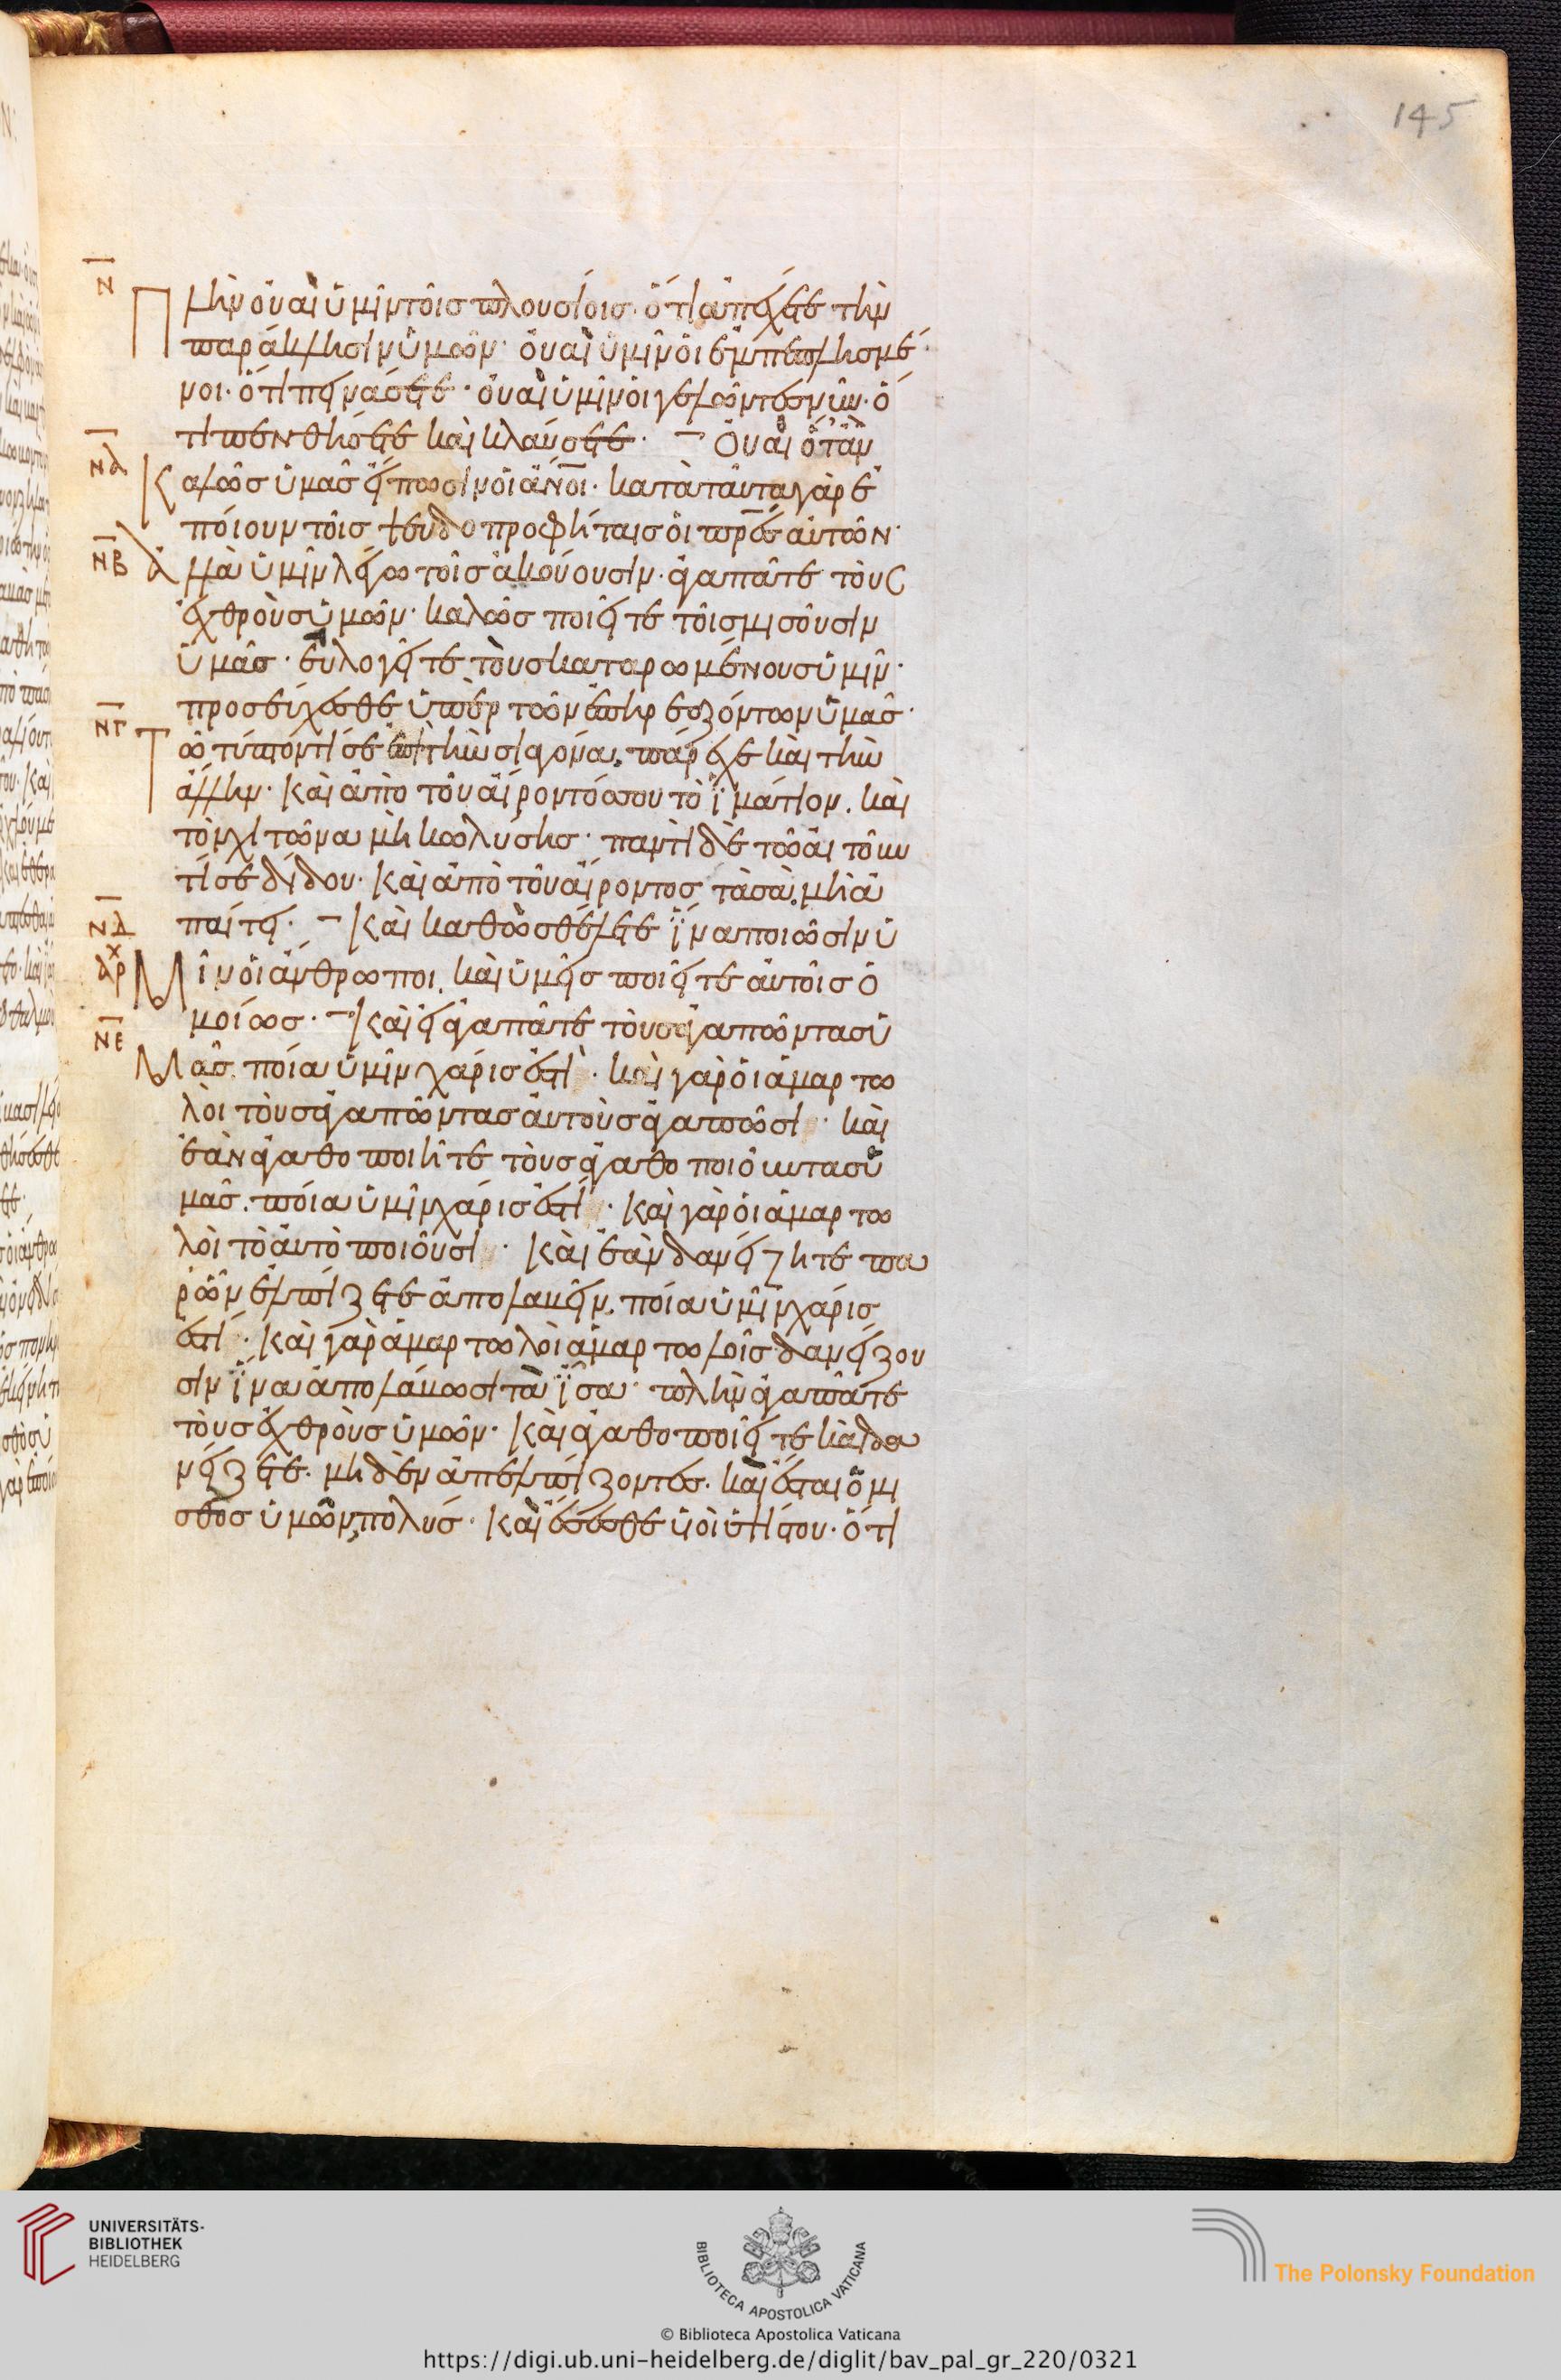 145
Ν
Πλὴν οὐαὶ ὑμῖν τοῖς πλουσίοις· ὅτι ἀπέχετε τὴν
παράκλησιν ὑμῶν· οὐαὶ ὑμῖν οἱ ἐμπεπλησμέ
νοι· ὅτι πεινάσετε· οὐαὶ ὑμῖν οἱ γελῶντες νῦν· ὅ
τι πενθήσετε καὶ κλαύσετε· Οὐαὶ ὅταν
ΝΑ
Καλῶς ὑμᾶς εἴπωσιν οἱ ἄνοι· κατὰ ταῦτα γὰρ ἐ
ποίουν τοῖς ψευδοπροφήταις οἱ πρες αὐτῶν·
ΝΒ
Ἀλλὰ ὑμῖν λέγω τοῖς ἀκούουσιν· ἀγαπᾶτε τοὺς
ἐχθροὺς ὑμῶν· καλῶς ποιεῖτε τοῖς μισοῦσιν
ὑμᾶς· εὐλογεῖτε τοὺς καταρωμένους ὑμῖν·
προσεύχεσθε ὑπὲρ τῶν ἐπηρεαζόντων ὑμᾶς·
ΝΓ
Τῶ τύπτοντί σε ἐπὶ τὴν σιαγόνα, πάρεχε καὶ τὴν
ἄλλην· καὶ ἀπὸ τοῦ αἴροντός σου τὸ ἱμάτιον, καὶ
τὸν χιτῶνα μὴ κωλύσης· παντὶ δὲ τῶ αἰτοῦν
τί σε δίδου· καὶ ἀπὸ τοῦ αἴροντος τὰ σὰ, μὴ ἀ
παίτει· Καὶ καθὼς θέλετε ἵνα ποιῶσιν ὑ
ΝΔ
ΑΡΧ
Μῖν οἱ ἄνθρωποι, καὶ ὑμεῖς ποιεῖτε αὐτοῖς ὁ
μοίως· Καὶ εἰ ἀγαπᾶτε τοὺς ἀγαπῶντας ὑ
ΝΕ
Μᾶς, ποία ὑμῖν χάρις ἐστί· καὶ γὰρ οἱ ἁμαρτω
λοὶ τοὺς ἀγαπῶντας αὐτοὺς ἀγαπῶσι· καὶ
ἐὰν ἀγαθοποιῆτε τοὺς ἀγαθοποιοῦντας ὑ
μᾶς, ποία ὑμῖν χάρις ἐστί· καὶ γὰρ οἱ ἁμαρτω
λοὶ τὸ αὐτὸ ποιοῦσι· καὶ ἐὰν δανείζητε πα
ρ ὧν ἐλπίζετε ἀπολαβεῖν, ποία ὑμῖν χάρις
ἐστί· καὶ γὰρ ἁμαρτωλοὶ ἁμαρτωλοῖς δανείζου
σιν ἵνα ἀπολάβωσι τὰ ἴσα· πλὴν ἀγαπᾶτε
τοὺς ἐχθροὺς ὑμῶν· καὶ ἀγαθοποιεῖτε καὶ δα
νείζετε· μηδὲν ἀπελπίζοντες· καὶ ἔσται ὁ μι
σθὸς ὑμῶν πολύς· καὶ ἔσεσθε υἱοὶ ὑψίστου· ὅτι
UNIVERSITÄTS-
BIBLIOTHEK
HEIDELBERG
BIBLIOTECA APOSTOLICA VATICANA
The Polonsky Foundation
© Biblioteca Apostolica Vaticana
https://digi.ub.uni-heidelberg.de/diglit/bav_pal_gr_220/0321